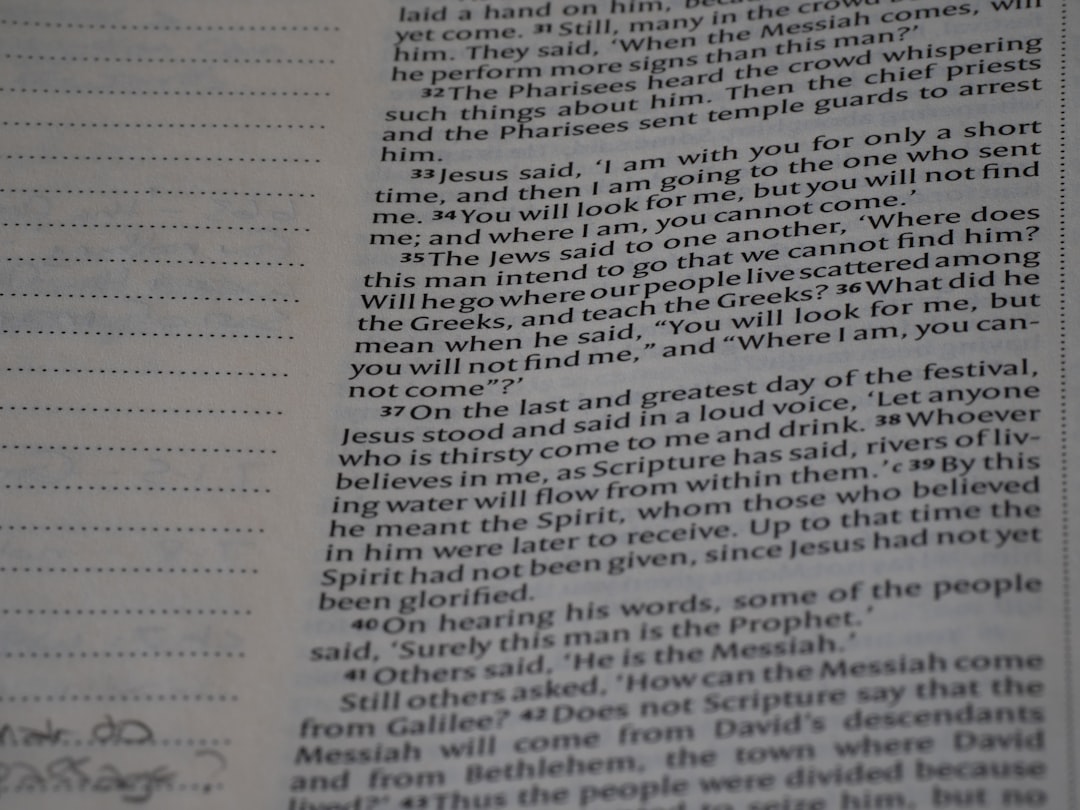 laid a hand on him,
yet come. 31 Still, many in the crowd
him. They said, ‘When the Messiah comes, will
he perform more signs than this man?’
32 The Pharisees heard the crowd whispering
such things about him. Then the chief priests
and the Pharisees sent temple guards to arrest
him.
33 Jesus said, ‘I am with you for only a short
time, and then I am going to the one who sent
me. 34 You will look for me, but you will not find
me; and where I am, you cannot come.’
35 The Jews said to one another, ‘Where does
this man intend to go that we cannot find him?
Will he go where our people live scattered among
the Greeks, and teach the Greeks? 36 What did he
mean when he said, “You will look for me, but
you will not find me,” and “Where I am, you can-
not come”?’
37 On the last and greatest day of the festival,
Jesus stood and said in a loud voice, ‘Let anyone
who is thirsty come to me and drink. 38 Whoever
believes in me, as Scripture has said, rivers of liv-
ing water will flow from within them.’ c 39 By this
he meant the Spirit, whom those who believed
in him were later to receive. Up to that time the
Spirit had not been given, since Jesus had not yet
been glorified.
40 On hearing his words, some of the people
said, ‘Surely this man is the Prophet.’
41 Others said, ‘He is the Messiah.’
Still others asked, ‘How can the Messiah come
from Galilee? 42 Does not Scripture say that the
Messiah will come from David’s descendants
and from Bethlehem, the town where David
lived?’ 43 Thus the people were divided because
to seize him, but no
do
passage..?